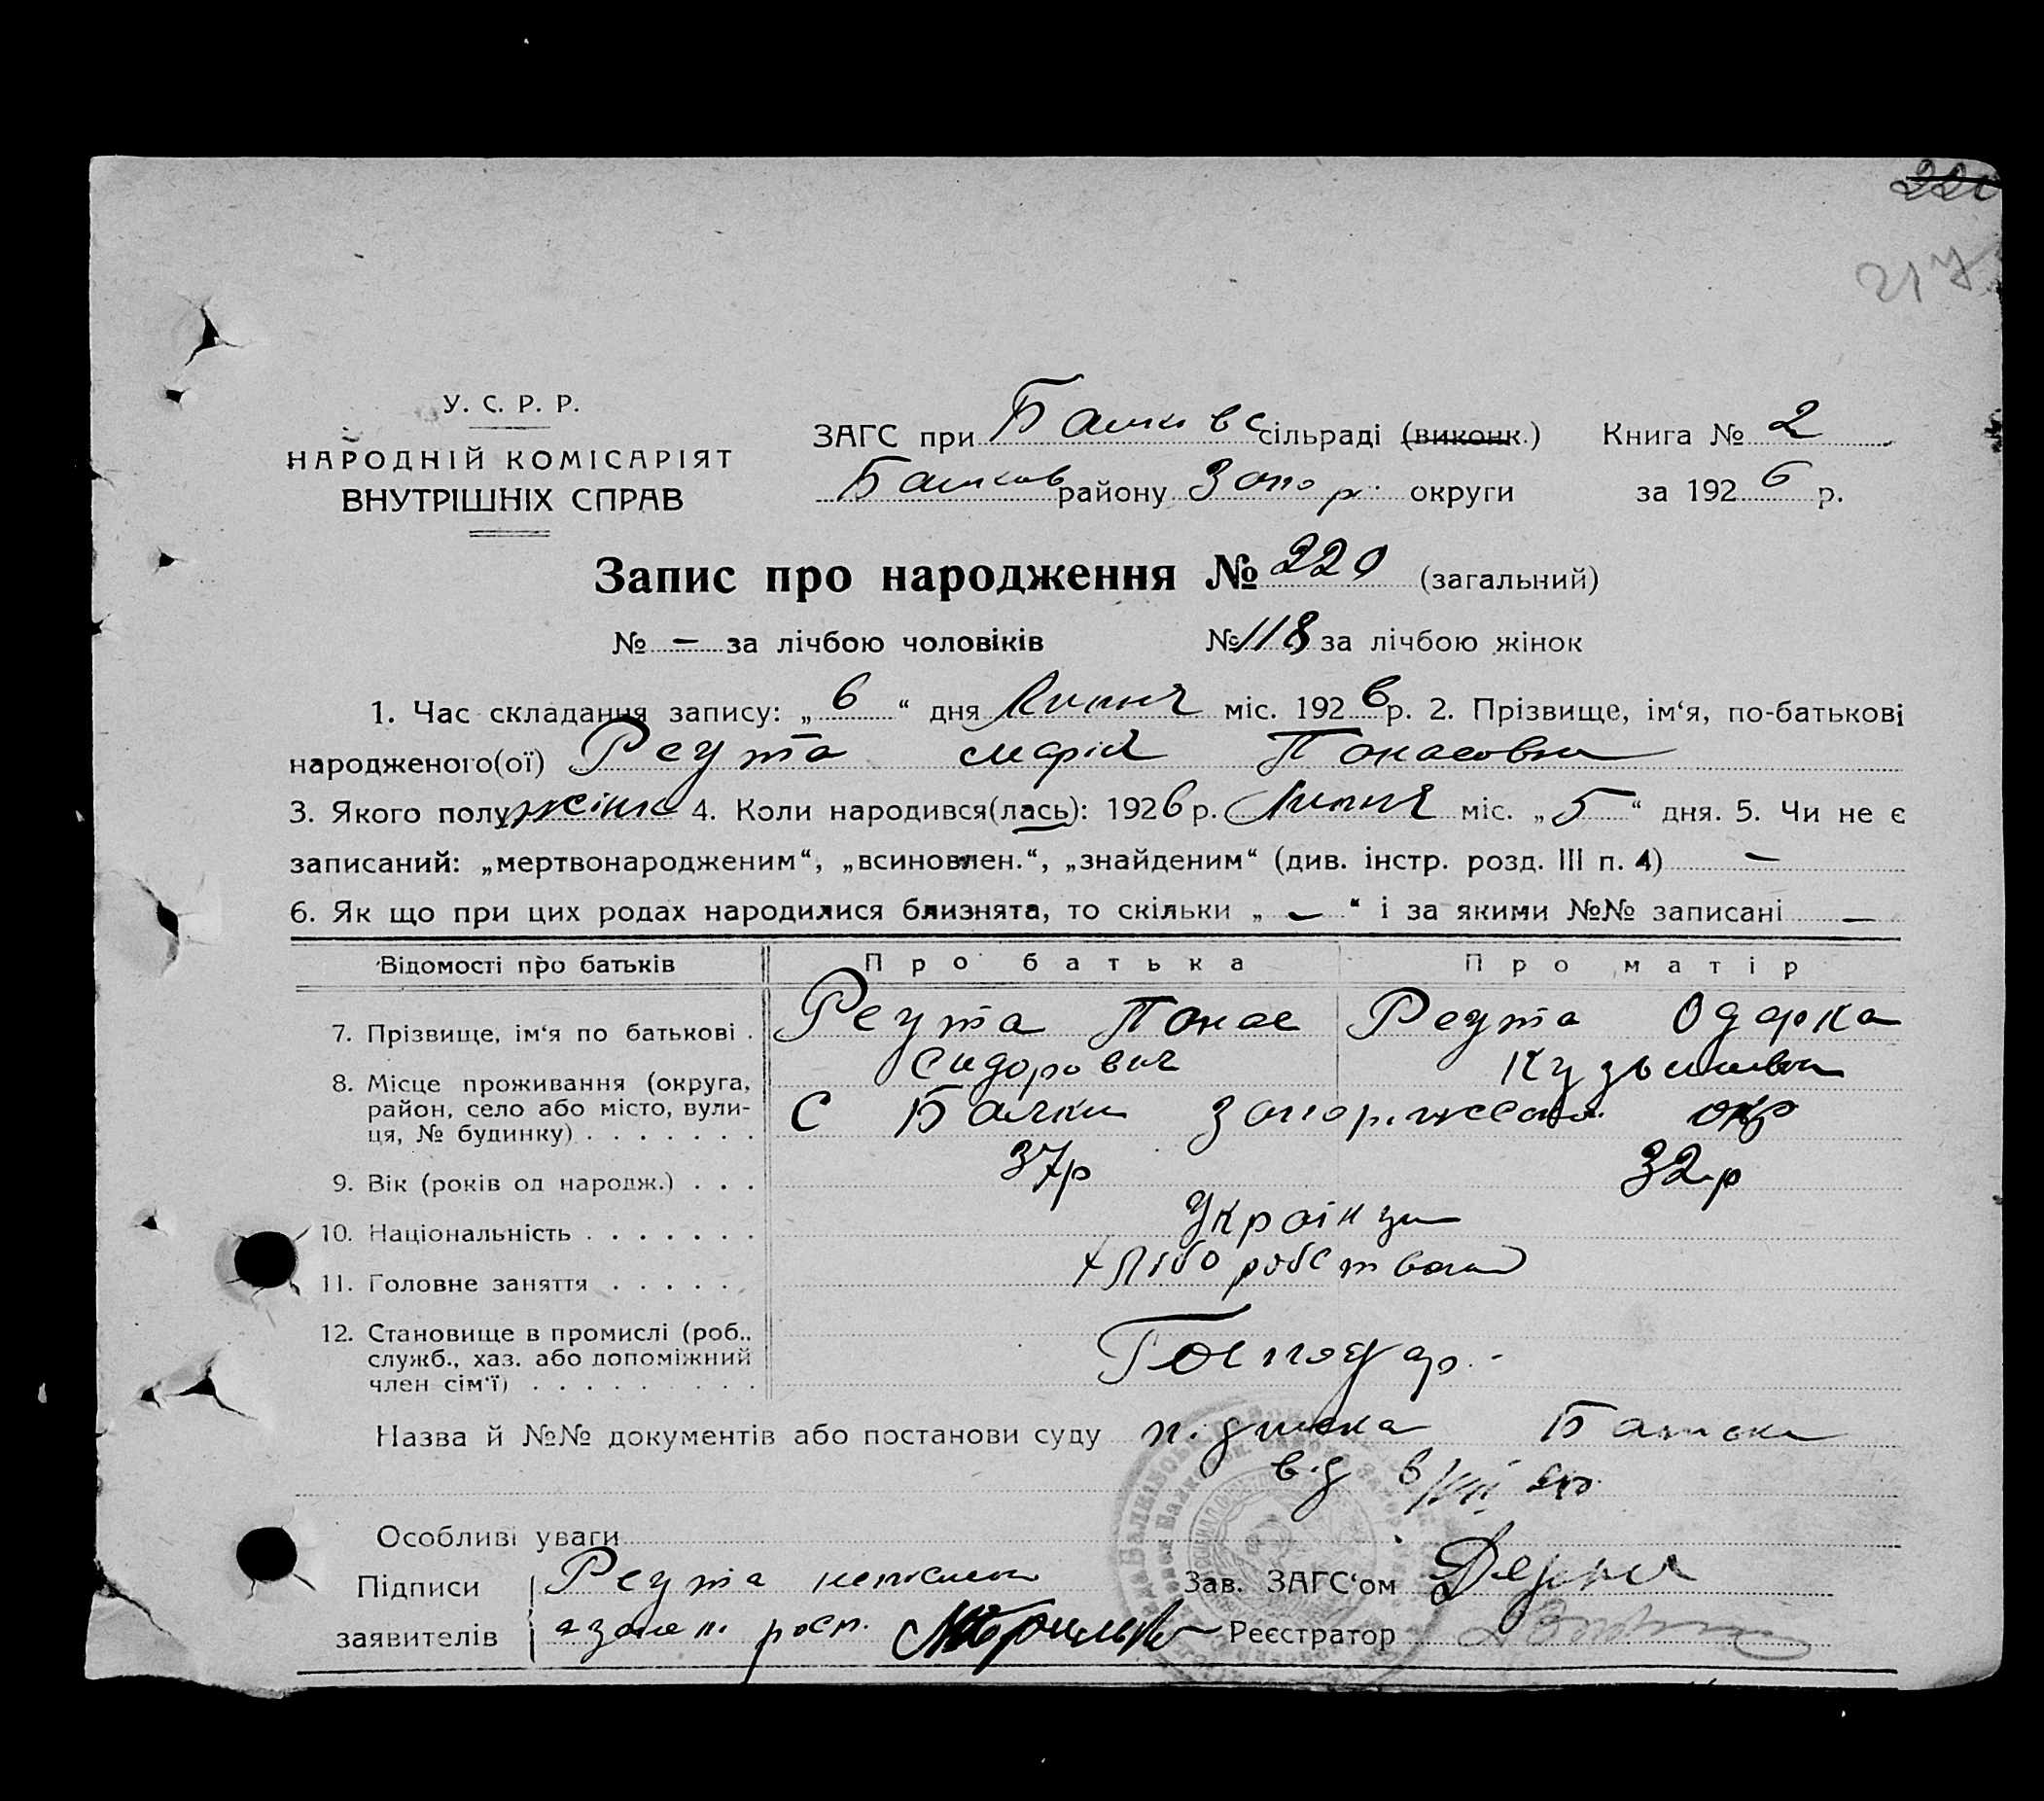 220
217
У. С. Р. Р.
НАРОДНІЙ КОМІСАРІЯТ
ВНУТРІШНІХ СПРАВ
ЗАГС при Балківс сільраді (виконк.) Книга № 2
Балков району Запор. округи за 1926 р.
Запис про народження № 220 (загальний)
№ – за лічбою чоловіків № 118 за лічбою жінок
1. Час складання запису: „ 6 “ дня Липня міс. 1926 р. 2. Прізвище, ім‘я, по-батькові
народженого(ої) Реута Марія Панасовна
3. Якого полу жіноч 4. Коли народився(лась): 1926 р. Липня міс. „ 5 “ дня. 5. Чи не є
записаний: „мертвонародженим“, „всиновлен.“, „знайденим“ (див. інстр. розд. III п. 4) –
6. Як що при цих родах народилися близнята, то скільки „ – “ і за якими №№ записані –
Відомості про батьків Про батька Про матір
7. Прізвище, ім‘я по батькові . Реута Панас Реута Одарка
Сидорович Кузьмівна
8. Місце проживання (округа,
район, село або місто, вули-
ця, № будинку) . . . . . . . С Балки Запоріжської окр
9. Вік (років од народж.) . . . 37р 32р
10. Національність . . . . . . . Українци
11. Головне заняття . . . . . Хліборобство
12. Становище в промислі (роб.,
служб., хаз. або допоміжний
член сім‘ї) . . . . . . . . . Господар.
Назва й №№ документів або постанови суду
від 6/VII
Особливі уваги
Підписи Реута неписьмен Зав. ЗАГС‘ом
заявителів а за нь росп. Реєстратор